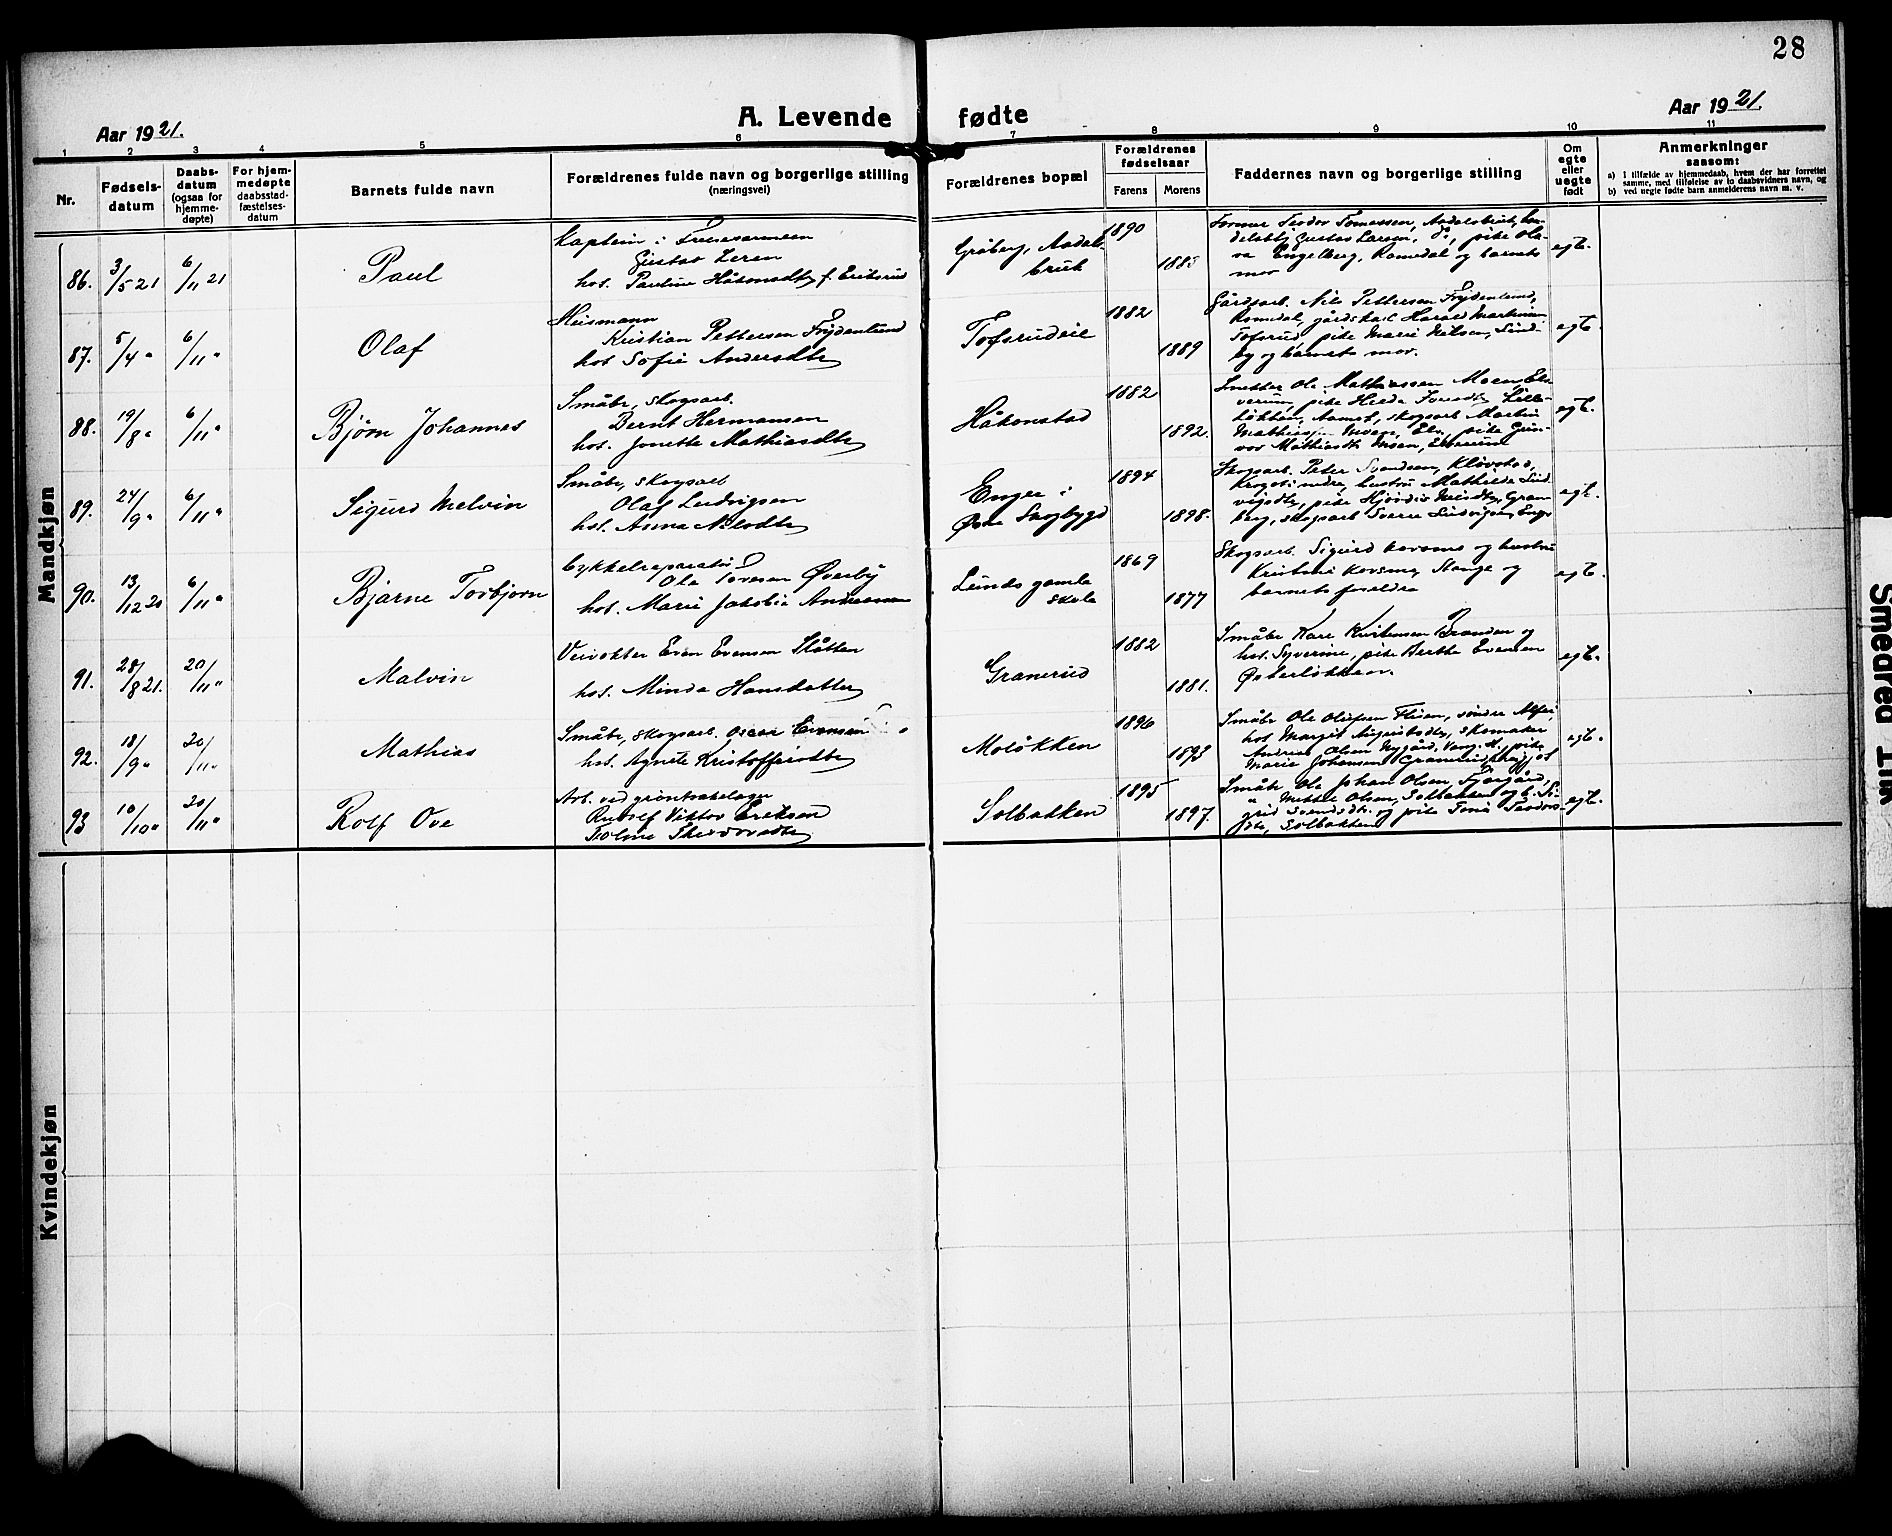 28
Aar 1921.
A. Levende fødte
Aar 1921.
1 2 3 4 5 6 7 8 9 10 11
Nr.
Fødsels-
datum
Daabs-
datum
(ogsaa for
hjemme-
døpte)
For hjem-
medøpte
daabsstad-
fæstelses-
datum
Barnets fulde navn
Forældrenes fulde navn og borgerlige stilling
(næringsvei)
Forældrenes bopæl
Forældrenes
fødselsaar
Farens Morens
Faddernes navn og borgerlige stilling
Om
egte
eller
uegte
født
Anmerkninger
saasom:
a) I tilfælde av hjemmedaab, hvem der har forrettet
samme, med tilføielse av to daabsvidners navn, og
b) ved uegte fødte barn anmelderens navn m. v.
Mandkjøn
86. 3/5 21 6/11 21 Paul
Kaptein i Frelsesarmeen
Gustav Leren
hst. Pauline Håkonsdtr f. Eriksrud
Gråberg, Aadals
bruk
1890 1885
Former Teodor Tomassen, Aadalsbruk, han-
delsbtj Gustav Larsen, do, pike Ola-
va Engelberg, Romedal og barnets
mor
egte.
87. 5/4 " 6/11 " Olaf
Heismann
Kristian Pettersen Frydenlund
hst Sofie Andersdtr
Tofsrudeie
1882 1889
Gårdsarb. Nils Pettersen Frydenlund,
Romedal, gårdskarl Harald Martinsen
Tofsrud, pike Marie Nilsen, Lund
by og barnets mor.
egte.
88. 19/8 " 6/11 " Bjørn Johannes
Småbr., skogsarb.
Bernt Hermansen
hst. Jonette Mathiasdtr
Håkonstad
1882 1892.
Snekker Ole Mathiassen Moen, Elv
verum, pike Hilda Lille-
løkken, Aamot, skogsarb Martin
Mathiassen Moen, Elv., pike Gun-
vor Mathiasdtr Moen, Elverum
egte.
89. 24/9 " 6/11 " Sigurd Melvin
Småbr., skogsarb
Olaf Ludvigsen
hst. Anna Nilsdtr
Enger i
Østre Skogbygd
1894 1898.
Skogsarb. Peter Svendsen, Kløvstad,
hustru Mathilde Lud
vigsdtr, pike Hjørdis Nilsdtr, Gran
berg, skogsarb Sverre Ludvigsen, Enger
egte.
90. 13/12 20 6/11 " Bjarne Torbjørn
Cykkelreparatør
Ole Iversen Øverby
hst. Marie Jakobie Andreassen
Lunds gamle
skole
1869 1877
Skogsarb. Sigurd Korsmo og hustru
Kristine Korsmo, Stange og
barnets foreldre
egte.
91. 28/8 21. 20/11 " Malvin
Veivokter Even Evensen Slåtten
hst. Minda Hansdatter
Granerud
1882 1881.
Småbr Kare Kristensen Branden og
hst. Syverine, pike Berthe Evensen
Østerløkken.
egte.
92. 18/9 " 20/11 " Mathias
Småbr., skogsarb. Oscar Evensen
hst. Agnete Kristoffersdtr
Moløkken
1896 1893
Småbr Ole Olufsen Flisen, søndre Alfer,
hst Margit Augustsdtr, skomaker
Andreas Olsen Nygård, Vang. H., pike
Marie Johansen Granerud
egte.
93 10/10 " 20/11 " Rolf Ove
Arb. ved grøntsakslager
Rudolf Viktor Eriksen
Toline Theodorsdtr
Solbakken
1895 1897.
Småbr. Ole Johan Olsen Fjorgård,
" Mikkel Olsen, Solbakken og h. Si-
grid Svendsdtr. og pike Tona Teodors
dtr, Solbakken
egte.
Kvindekjøn
Smedred Tilk